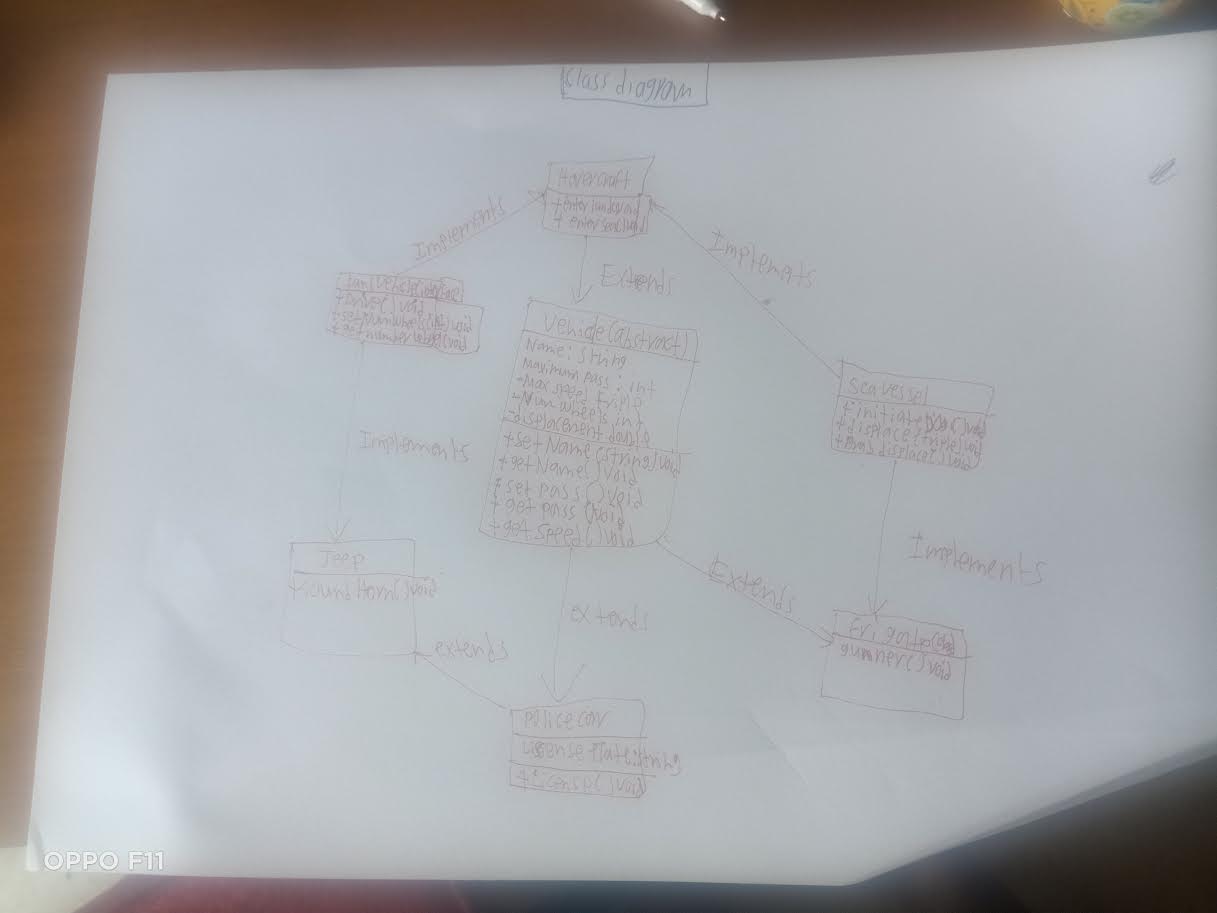 Class diagram
Hovercraft
+ enter land() void
+ enter sea() void
Implements
Implements
Extends
Vehicle (interface
+ Drive() void
+ set Num wheels(int) void
+ get number wheels() void
Vehicle (abstract)
Name: string
Maximum pass: int
- Max speed
- Num wheels int
- displacement double
+ set Name (string) void
+ get Name() void
+ set pass () void
+ get pass () void
+ get Speed () void
Sea vessel
+ initiate () void
+ displace void
displace() void
Implements
Implements
Extends
Jeep
+ Sound Horn() void
extends
extends
gunner() void
Police car
License Plate: string
+ license() void
OPPO F11